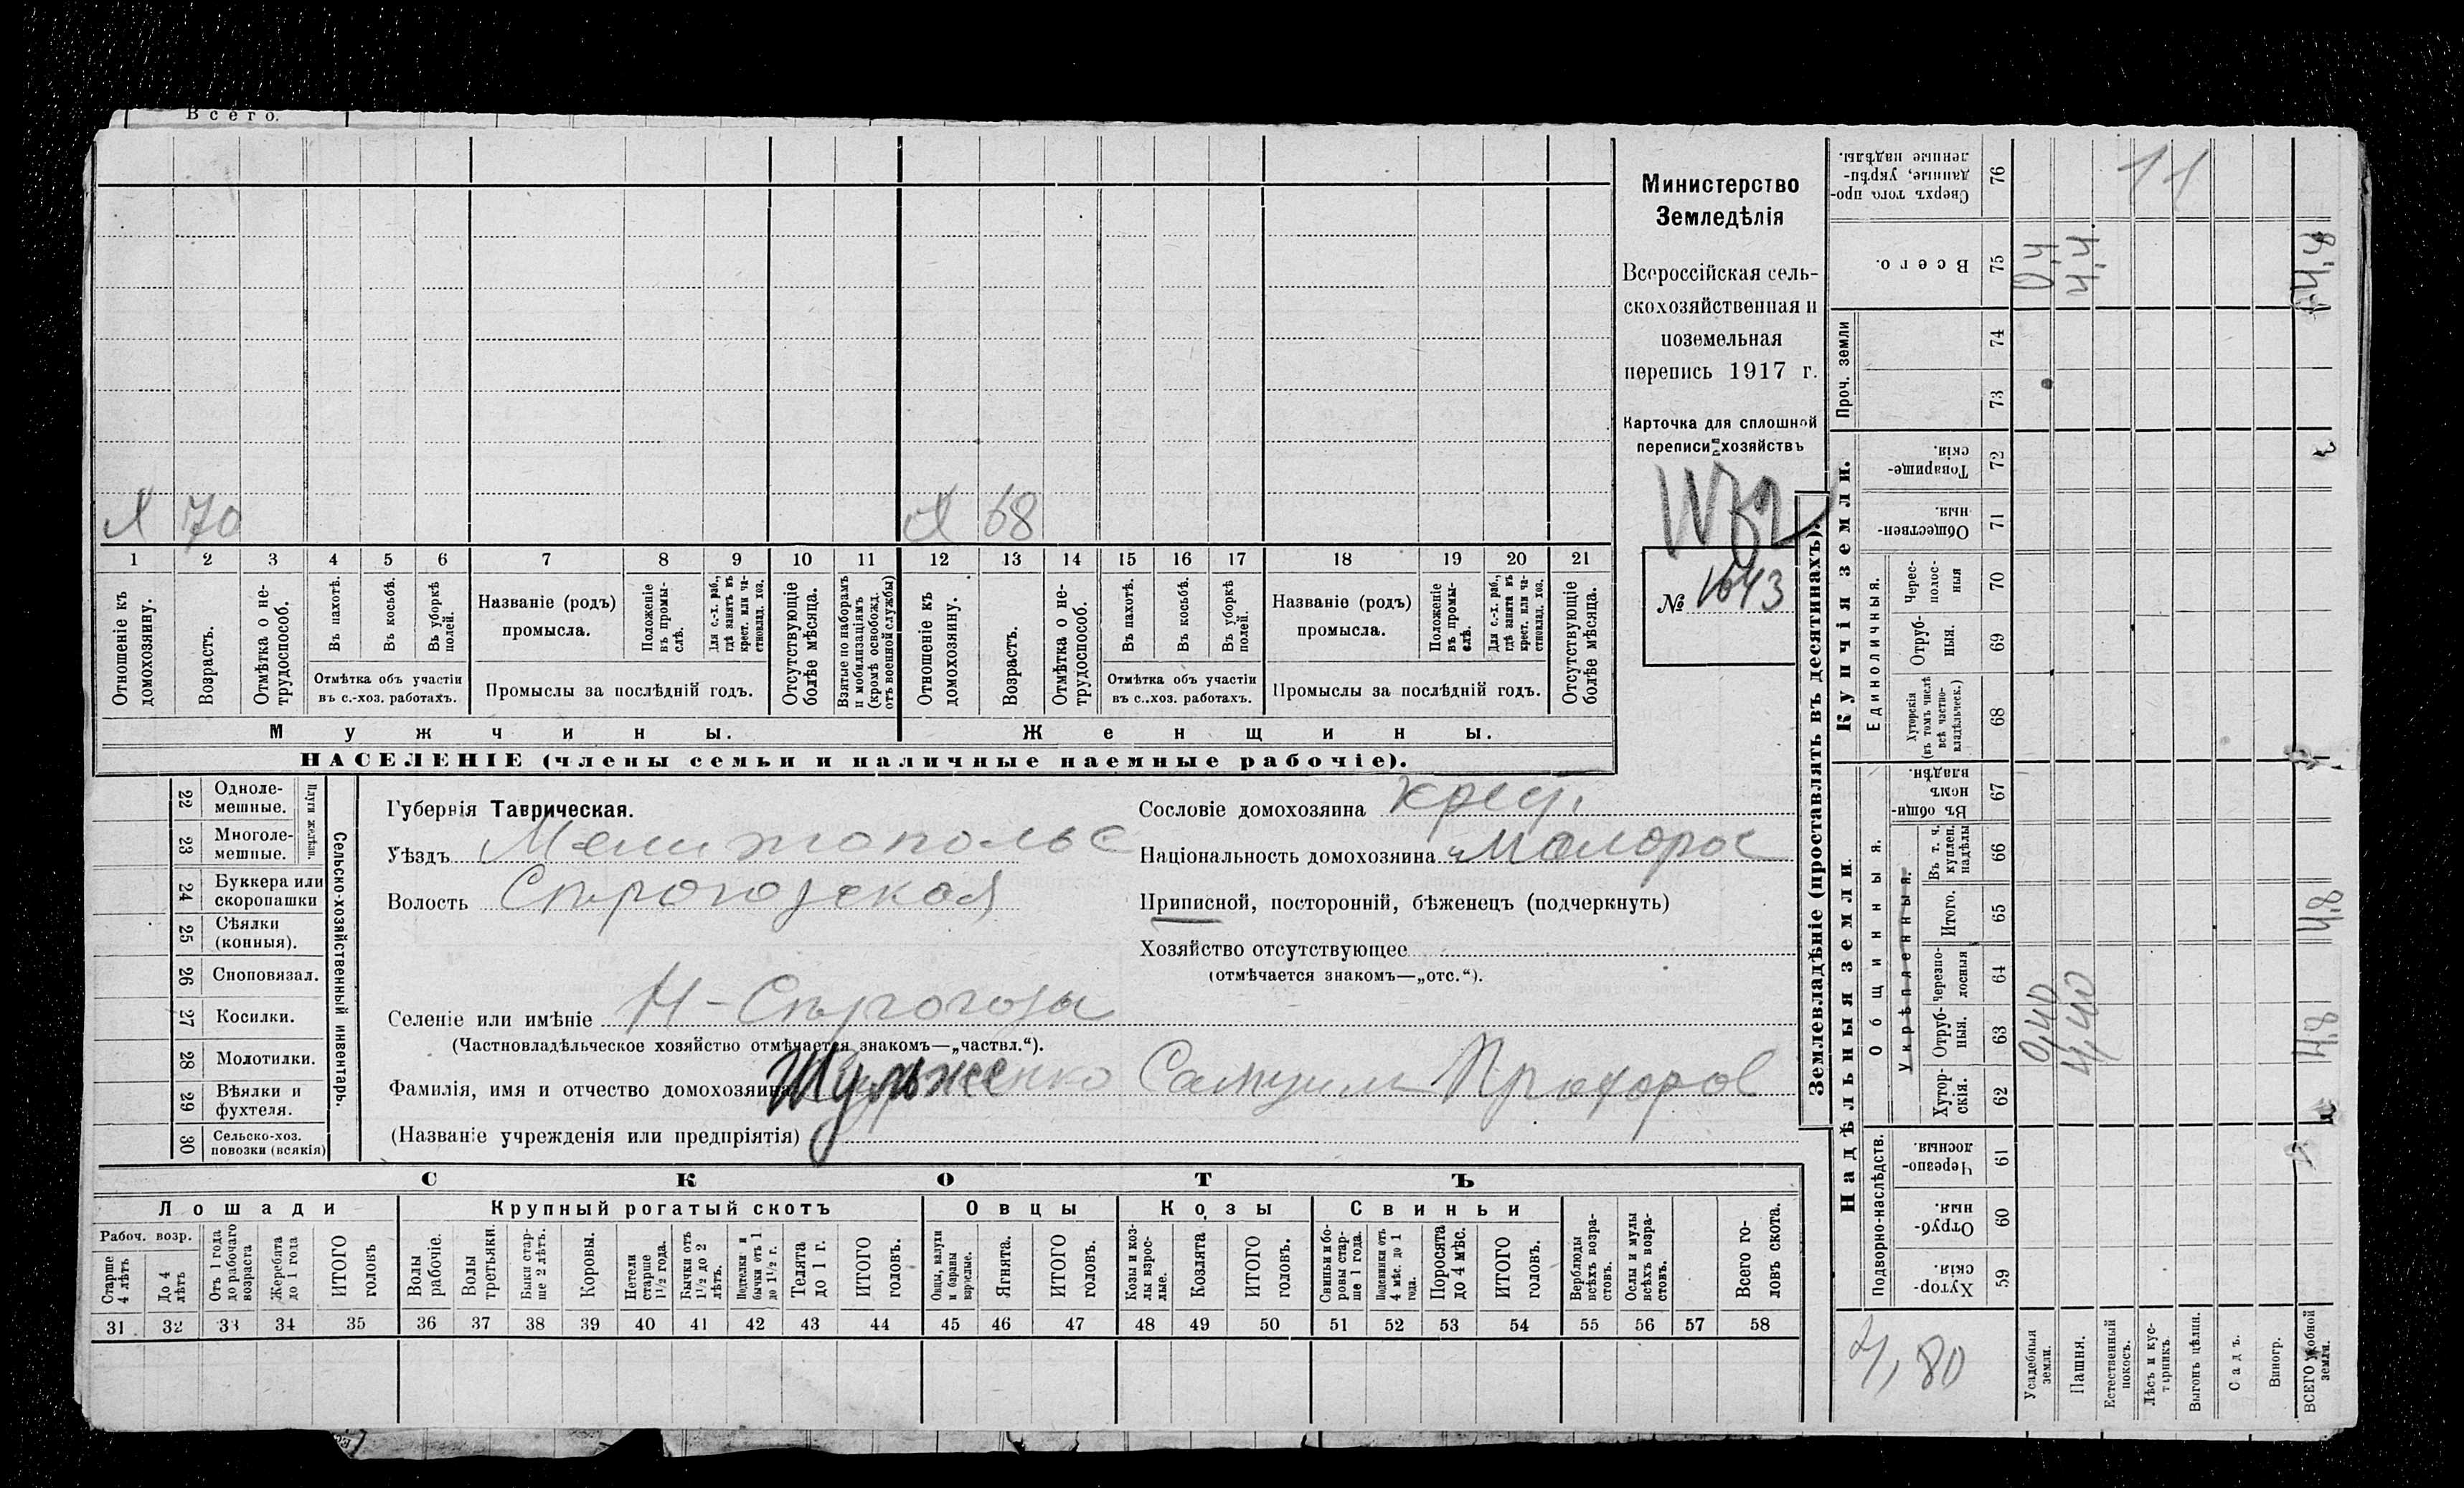 Всего.
Х 70
Х 68
1 2 3 4 5 6 7 8 9 10 11 12 13 14 15 16 17 18 19 20 21
Отношеніе къ домохозяину.
Возрастъ.
Отмѣтка о не-
трудоспособ.
Въ пахотѣ.
Въ косьбѣ.
Въ уборкѣ полей.
Отмѣтка объ участіи
въ с.-хоз. работахъ.
Названіе (родъ)
промысла.
Положеніе въ промы-
слѣ.
Для с.-х. раб.,
гдѣ занятъ въ
крест. или ча-
стновлад. хоз.
Промыслы за послѣдній годъ.
Отсутствующіе
болѣе мѣсяца.
Взятые по наборамъ
и мобилизаціямъ
(кромѣ освобожд.
отъ военной службы)
Отношеніе къ
домохозяину.
Возрастъ.
Отмѣтка о не-
трудоспособ.
Въ пахотѣ.
Въ косьбѣ.
Въ уборкѣ
полей.
Отмѣтка объ участіи
въ с..хоз. работахъ.
Названіе (родъ)
промысла.
Положеніе
въ промы-
слѣ.
Для с.-х. раб.,
гдѣ занята въ
крест. или ча-
стновлад. хоз.
Промыслы за послѣдній годъ.
Отсутствующіе
болѣе мѣсяца.
Мужчины.
Женщины.
НАСЕЛЕНІЕ (члены семьи и наличные наемные рабочіе).
Министерство
Земледѣлія
Всероссійская сель-
скохозяйственная и
поземельная
перепись 1917 г.
Карточка для сплошной
переписи хозяйствъ
№ 1643
22 Одноле-
мешные.
23 Многоле-
мешные.
Плуги желѣзн.
24 Буккера или
скоропашки
25 Сѣялки
(конныя).
26 Сноповязал.
27 Косилки.
28 Молотилки.
29 Вѣялки и
фухтеля.
30 Сельско-хоз.
повозки (всякія)
Сельско-хозяйственный инвентарь.
Губернія Таврическая.
Уѣздъ Мелитопольс
Волость Сѣрогозская
Селеніе или имѣніе Н-Сѣрогозы
(Частновладѣльческое хозяйство отмѣчается знакомъ—„частвл.“).
Фамилія, имя и отчество домохозяина Шульженко Самуил Прохоров
(Названіе учрежденія или предпріятія)
Сословіе домохозяина крест.
Національность домохозяина Малорос
Приписной, посторонній, бѣженецъ (подчеркнуть)
Хозяйство отсутствующее
(отмѣчается знакомъ—„отс.“).
СКОТЪ
Лошади
Крупный рогатый скотъ
Овцы
Козы
Свиньи
Рабоч. возр.
Старше
4 лѣтъ
До 4
лѣтъ
Отъ 1 года
до рабочаго
возраста
Жеребята
до 1 года
ИТОГО
головъ
Волы
рабочіе.
Волы
третьяки.
Быки стар-
ше 2 лѣтъ.
Коровы.
Нетели
старше
1½ года.
Бычки отъ
1½ до 2
лѣтъ.
Подтелки и
бычки отъ 1
до 1½ г.
Телята
до 1 г.
ИТОГО
головъ.
Овцы, валухи
и бараны
взрослые.
Ягнята.
ИТОГО
головъ.
Козы и коз-
лы взрос-
лые.
Козлята.
ИТОГО
головъ.
Свиньи и бо-
ровы стар-
ше 1 года.
Подсвинки отъ
4 мѣс. до 1
года.
Поросята
до 4 мѣс.
ИТОГО
головъ.
Верблюды
всѣхъ возра-
стовъ.
Ослы и мулы
всѣхъ возра-
стовъ.
Всего го-
ловъ скота.
31 32 33 34 35 36 37 38 39 40 41 42 43 44 45 46 47 48 49 50 51 52 53 54 55 56 57 58
Землевладѣніе (проставлять въ десятинахъ).
Надѣльныя земли.
Купчія земли.
Проч. земли
Подворно-наслѣдств.
Общинныя.
Укрѣпленныя.
Единоличныя.
Хутор-
скія. 59
Отруб-
ныя. 60
Черезпо-
лосныя 61
Хутор-
скія. 62
Отруб-
ныя. 63
Черезпо-
лосныя 64
Итого. 65
Въ т. ч.
куплен.
надѣлы 66
Въ общи-
номъ
владѣн. 67
Хуторскія
(въ томъ числѣ
всѣ частно-
владѣльческ.) 68
Отруб-
ныя. 69
Черес-
полос-
ныя 70
Обществен-
ныя. 71
Товарище-
скія. 72
73
74
Всего. 75
Сверхъ того про-
данные, укрѣп-
ленные надѣлы. 76
4,80
Усадебныя
земли. 0,40 0,4
Пашня. 4,40 4,4
Естественный
покосъ.
Лѣсъ и кус-
тарникъ.
Выгонъ цѣлин.
Садъ.
Виногр.
ВСЕГО удобной
земли. 4,8 4,8 4,8
11